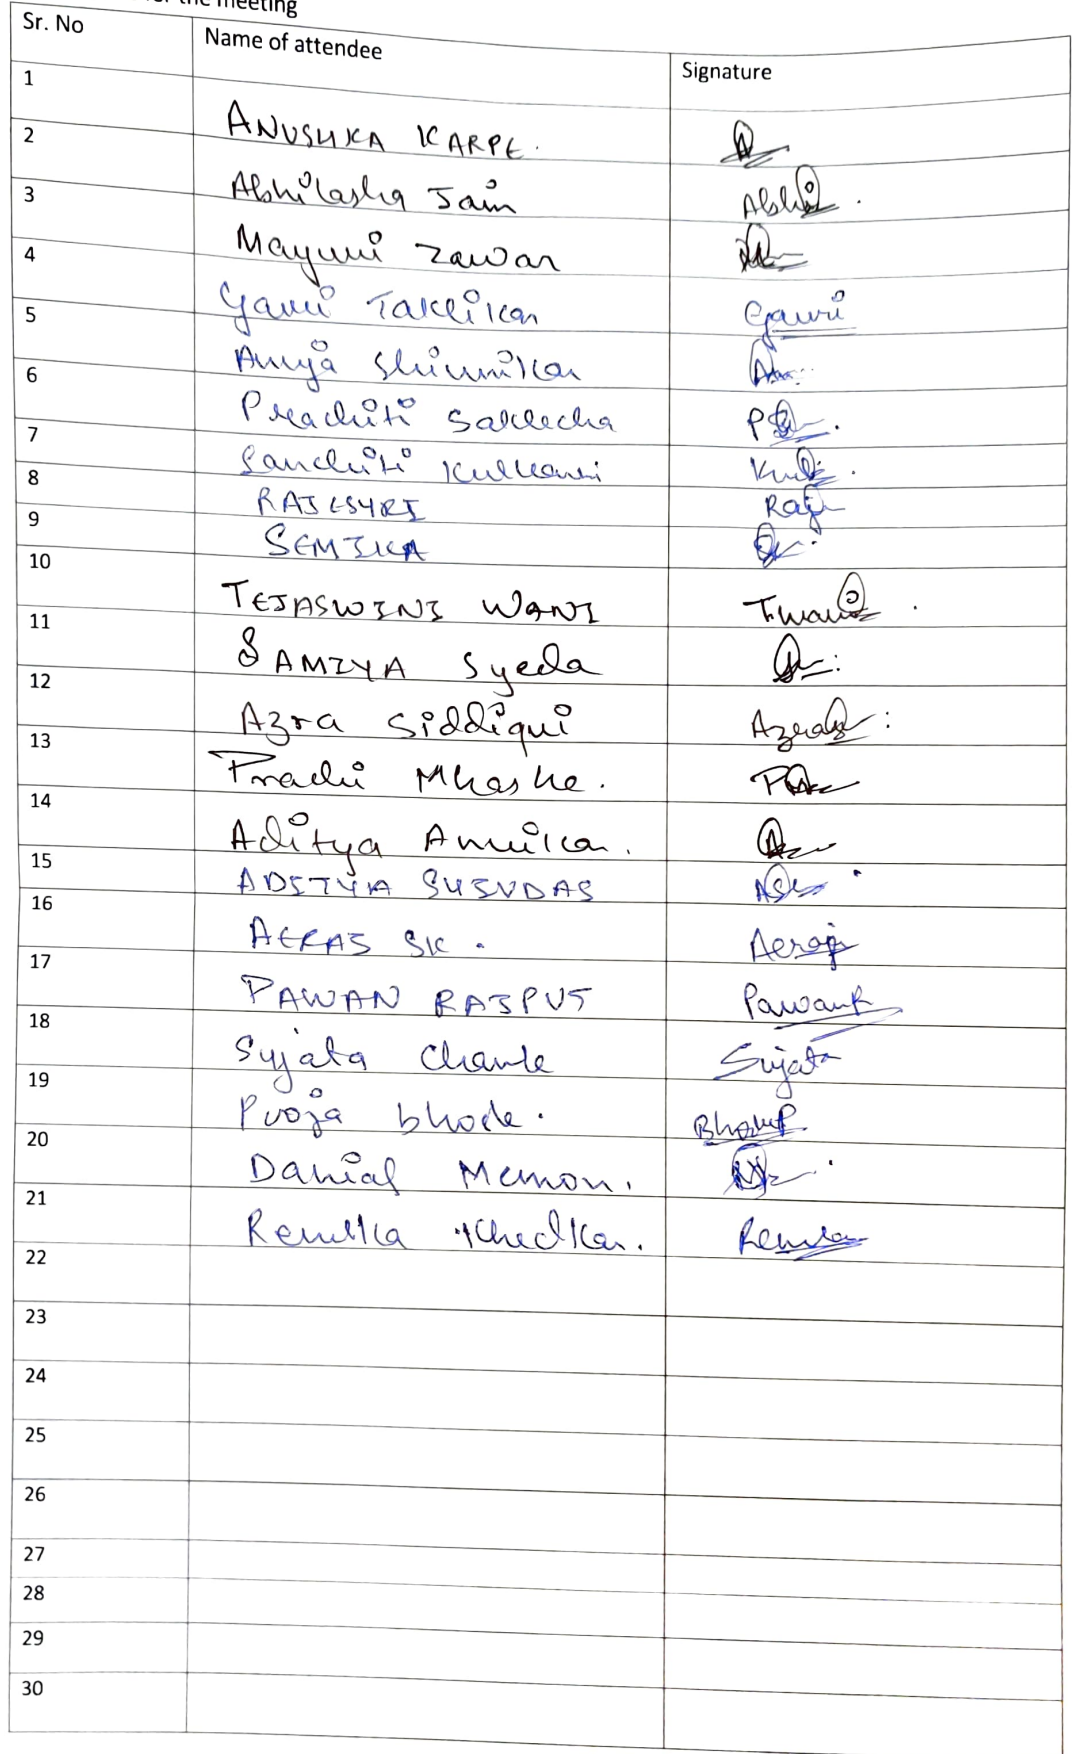 the meeting
Sr. No Name of attendee Signature
1 ANUSHKA KARPE.
2 Abhilasha Jain
3 Mayuri Zawar
4 Gauri Taklikar Gauri
5 Anuja Shirurikar
6 Prachiti Saklecha
7 Sanchiti Kulkarni
8 RAJESHRI Raj
9 SEMIKA
10 TEJASWINI WANI T.wani
11 SAMIYA Syeda
12 Azra Siddiqui Azra
13 Prachi Mhaske.
14 Aditya
15 ADITYA
16 AERAJ SK. Aeraj
17 PAWAN RAJPUT PawanR
18 Sujata Sujata
19 Pooja bhode. BhodeP
20 Danial Memon.
21 Renuka Khedkar. Renuka
22
23
24
25
26
27
28
29
30